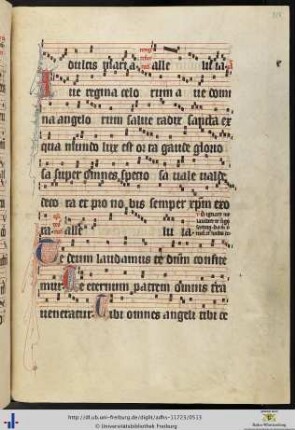 dulcis maria alle luia
Aue regina celo rum a ue domi
na angelo rum salue radix sancta ex
qua mundo lux est or ta gaude glorio
sa super omnes specio sa uale ualde
deco ra et pro no bis semper xpm exo
ra alle lu ia
Te deum laudamus te dnm confite
mur Te eternum patrem omnis tra
ueneratur Tibi omnes angeli tibi ce
http://dl.ub.uni-freiburg.de/diglit/adhs-11723/0513
© Universitätsbibliothek Freiburg
Baden-Württemberg